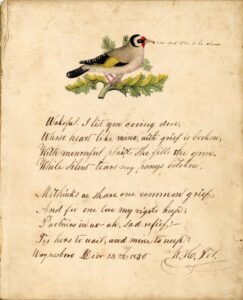 Wakeful I list yon cooing dove,
Whose heart like mine, with grief is broken,
With mournful plaint she fills the grove,
While silent tears my pangs betoken.
Methinks we share one common grief,
And for one love my vigils keep;
Partners in wo - ah, sad relief!
Tis hers to wail, and mine to weep.
Waynesboro Decr 14th 1830